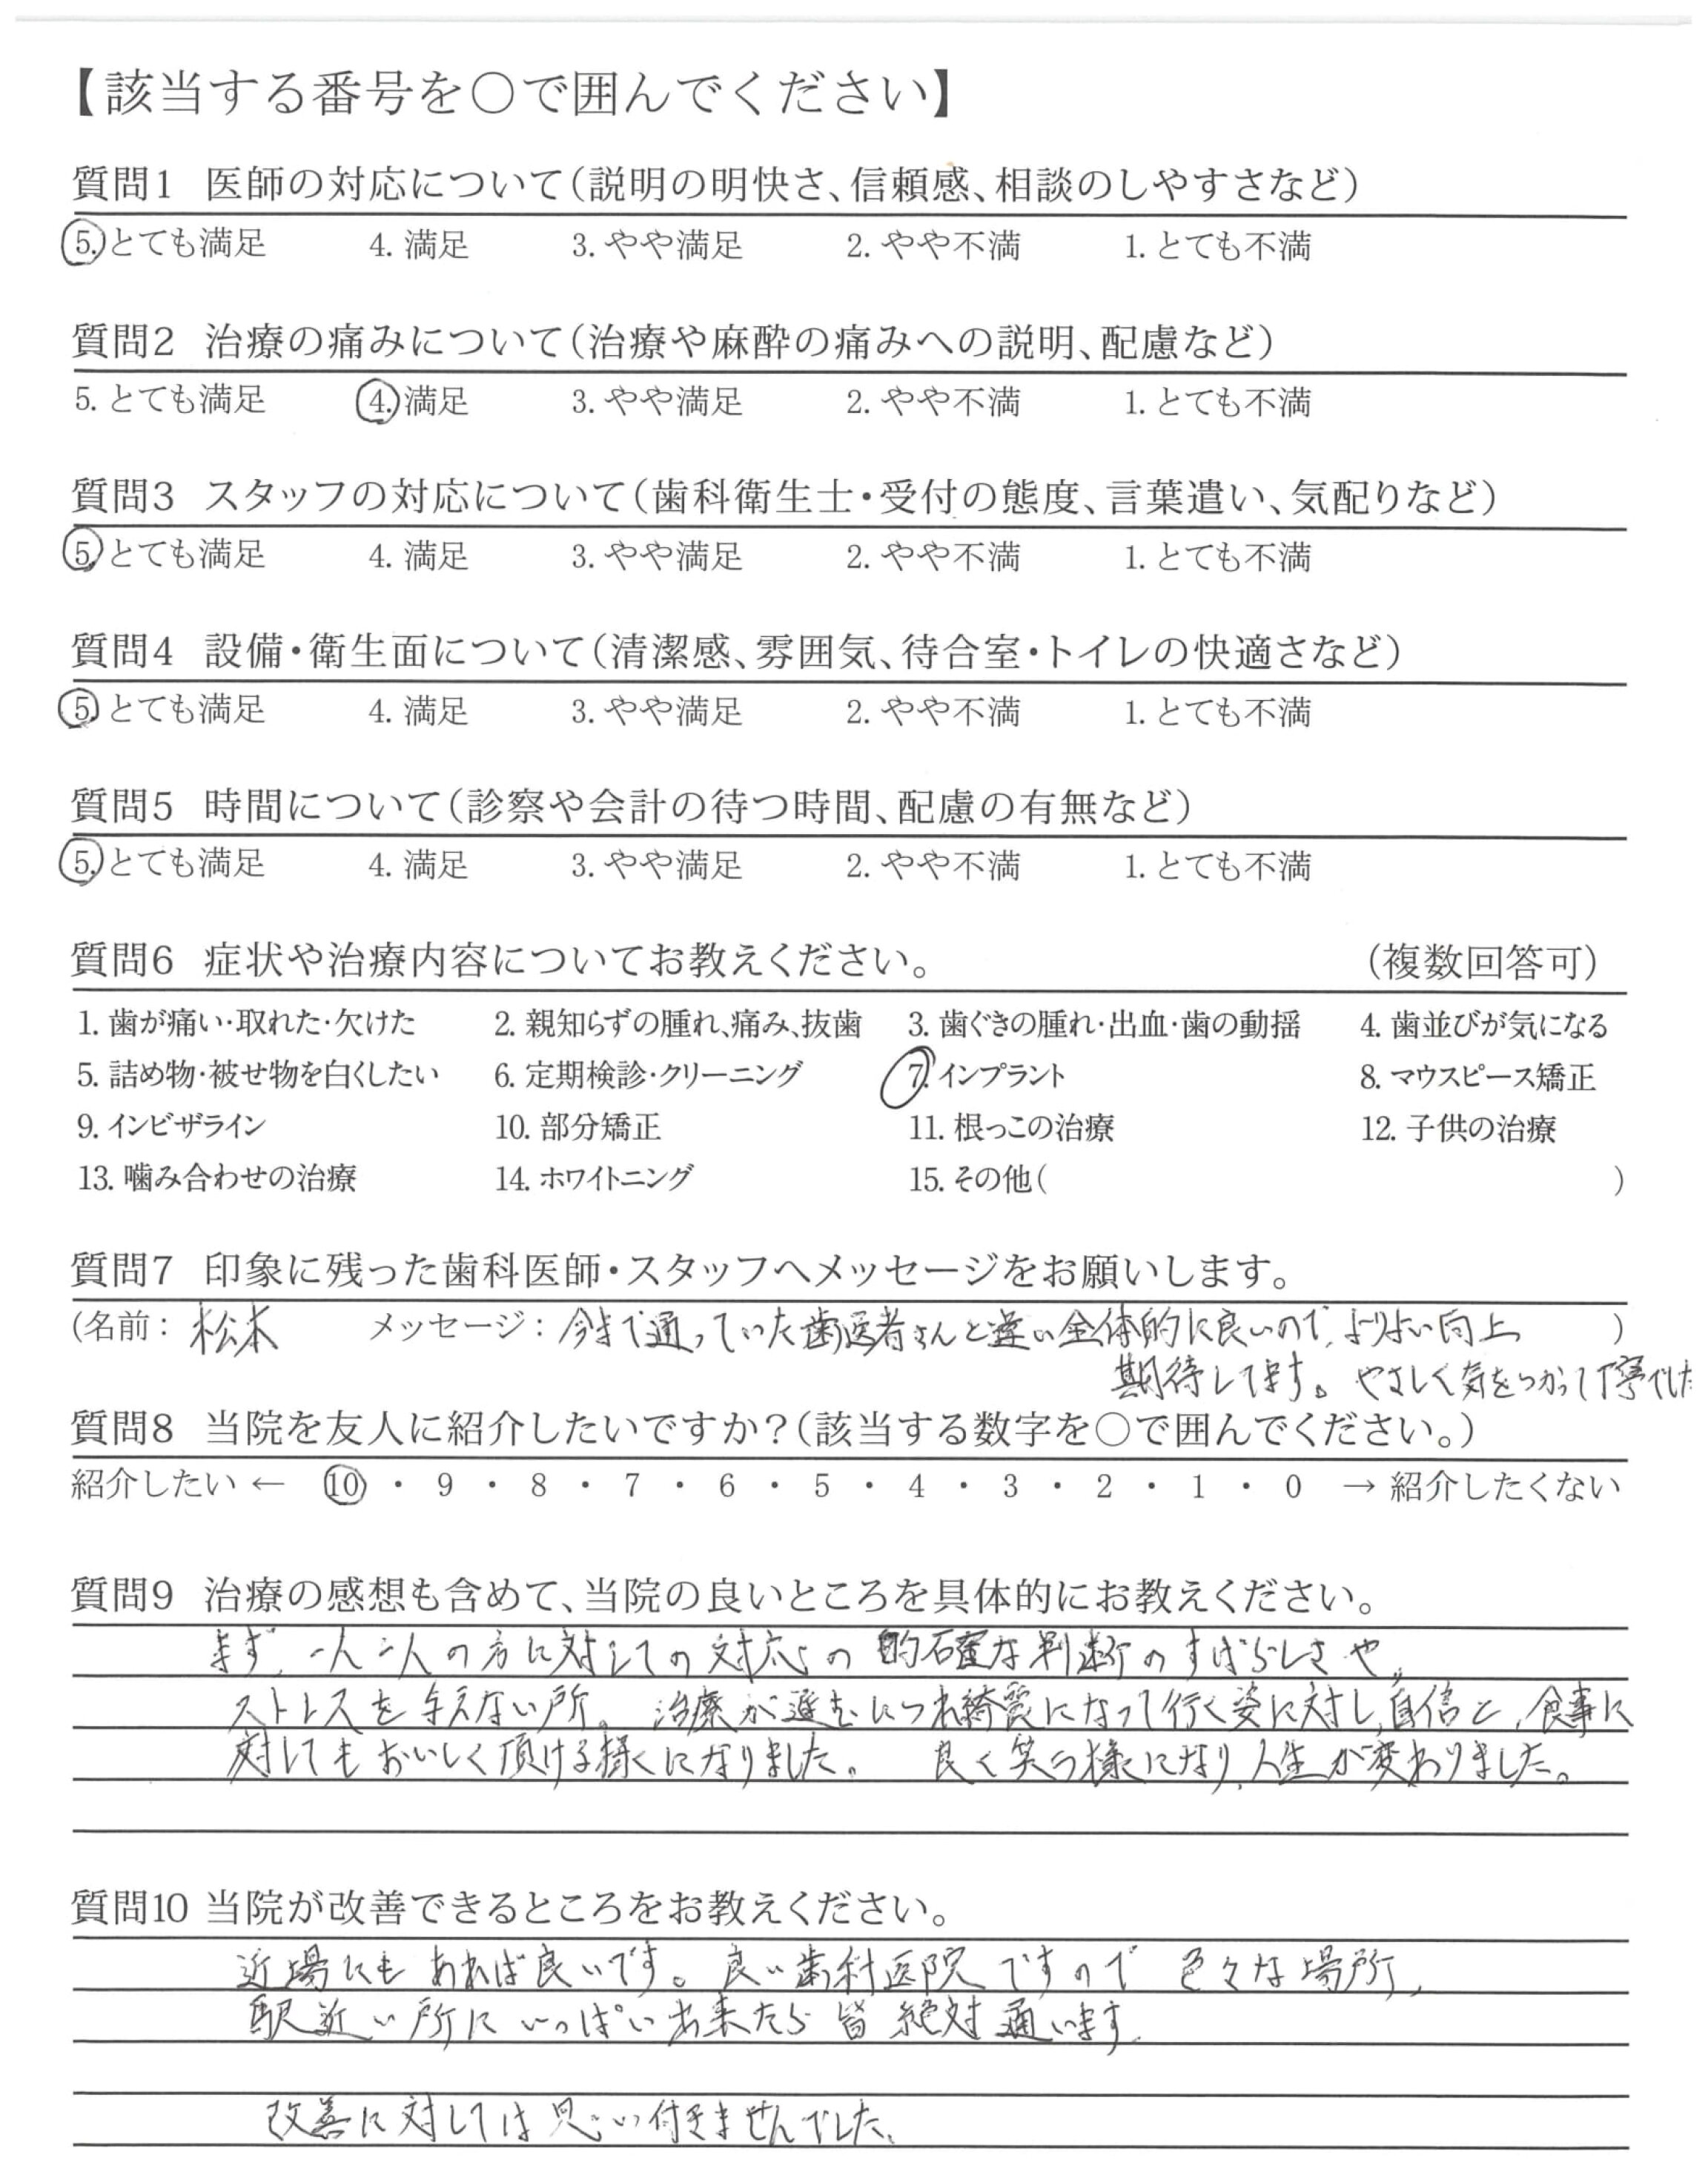 【該当する番号を○で囲んでください】
質問1 医師の対応について（説明の明快さ、信頼感、相談のしやすさなど）
5. とても満足 4. 満足 3. やや満足 2. やや不満 1. とても不満
質問2 治療の痛みについて（治療や麻酔の痛みへの説明、配慮など）
5. とても満足 4. 満足 3. やや満足 2. やや不満 1. とても不満
質問3 スタッフの対応について（歯科衛生士・受付の態度、言葉遣い、気配りなど）
5. とても満足 4. 満足 3. やや満足 2. やや不満 1. とても不満
質問4 設備・衛生面について（清潔感、雰囲気、待合室・トイレの快適さなど）
5. とても満足 4. 満足 3. やや満足 2. やや不満 1. とても不満
質問5 時間について（診察や会計の待つ時間、配慮の有無など）
5. とても満足 4. 満足 3. やや満足 2. やや不満 1. とても不満
質問6 症状や治療内容についてお教えください。 （複数回答可）
1. 歯が痛い・取れた・欠けた 2. 親知らずの腫れ、痛み、抜歯 3. 歯ぐきの腫れ・出血・歯の動揺 4. 歯並びが気になる
5. 詰め物・被せ物を白くしたい 6. 定期検診・クリーニング 7. インプラント 8. マウスピース矯正
9. インビザライン 10. 部分矯正 11. 根っこの治療 12. 子供の治療
13. 噛み合わせの治療 14. ホワイトニング 15. その他（ ）
質問7 印象に残った歯科医師・スタッフへメッセージをお願いします。
（名前： 松本 メッセージ： 今まで通っていた歯医者さんと違い全体的に良いので、よりよい向上 ）
期待してます。やさしく気をつかって丁寧でした
質問8 当院を友人に紹介したいですか？（該当する数字を○で囲んでください。）
紹介したい ← 10 ・ 9 ・ 8 ・ 7 ・ 6 ・ 5 ・ 4 ・ 3 ・ 2 ・ 1 ・ 0 → 紹介したくない
質問9 治療の感想も含めて、当院の良いところを具体的にお教えください。
まず、一人一人の方に対しての対応の的確な判断のすばらしさや、
ストレスを与えない所。治療が進むにつれ綺麗になって行く姿に対し、自信と、食事に
対してもおいしく頂ける様になりました。 良く笑う様になり、人生が変わりました。
質問10 当院が改善できるところをお教えください。
近場にもあれば良いです。良い歯科医院ですので 色々な場所、
駅近い所にいっぱい出来たら皆絶対通います。
改善に対しては思い付きませんでした。